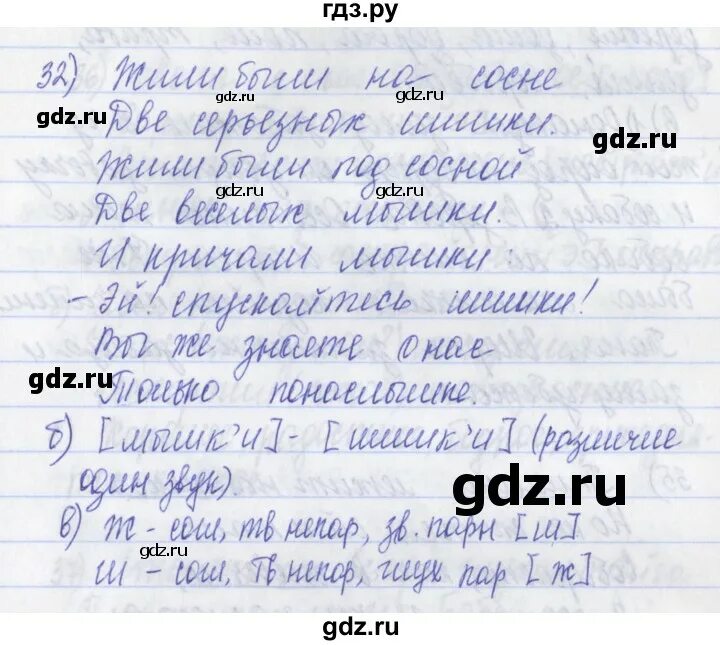 гдз.ру
32) Жили были на сосне
Две серьезных шишки.
Жили были под сосной
Две веселых мышки.
И кричали мышки:
- Эй! спускайтесь шишки!
Вы же знаете о нас
Только понаслышке.
б) [мышк'и] - [шишк'и] (различие
один звук).
в) Ж - согл, тв непар, зв. парн [ш]
ш - согл, тв непар, глух пар [ж]
gdz.ru
gdz.ru
gdz.ru
gdz.ru
gdz.ru
gdz.ru
gdz.ru
gdz.ru
gdz.ru
gdz.ru
gdz.ru
gdz.ru
gdz.ru